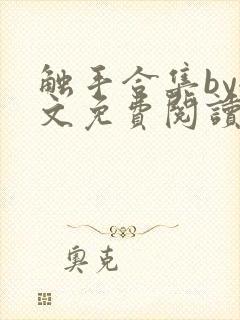 触手合集by
文免費閱讀
奧克